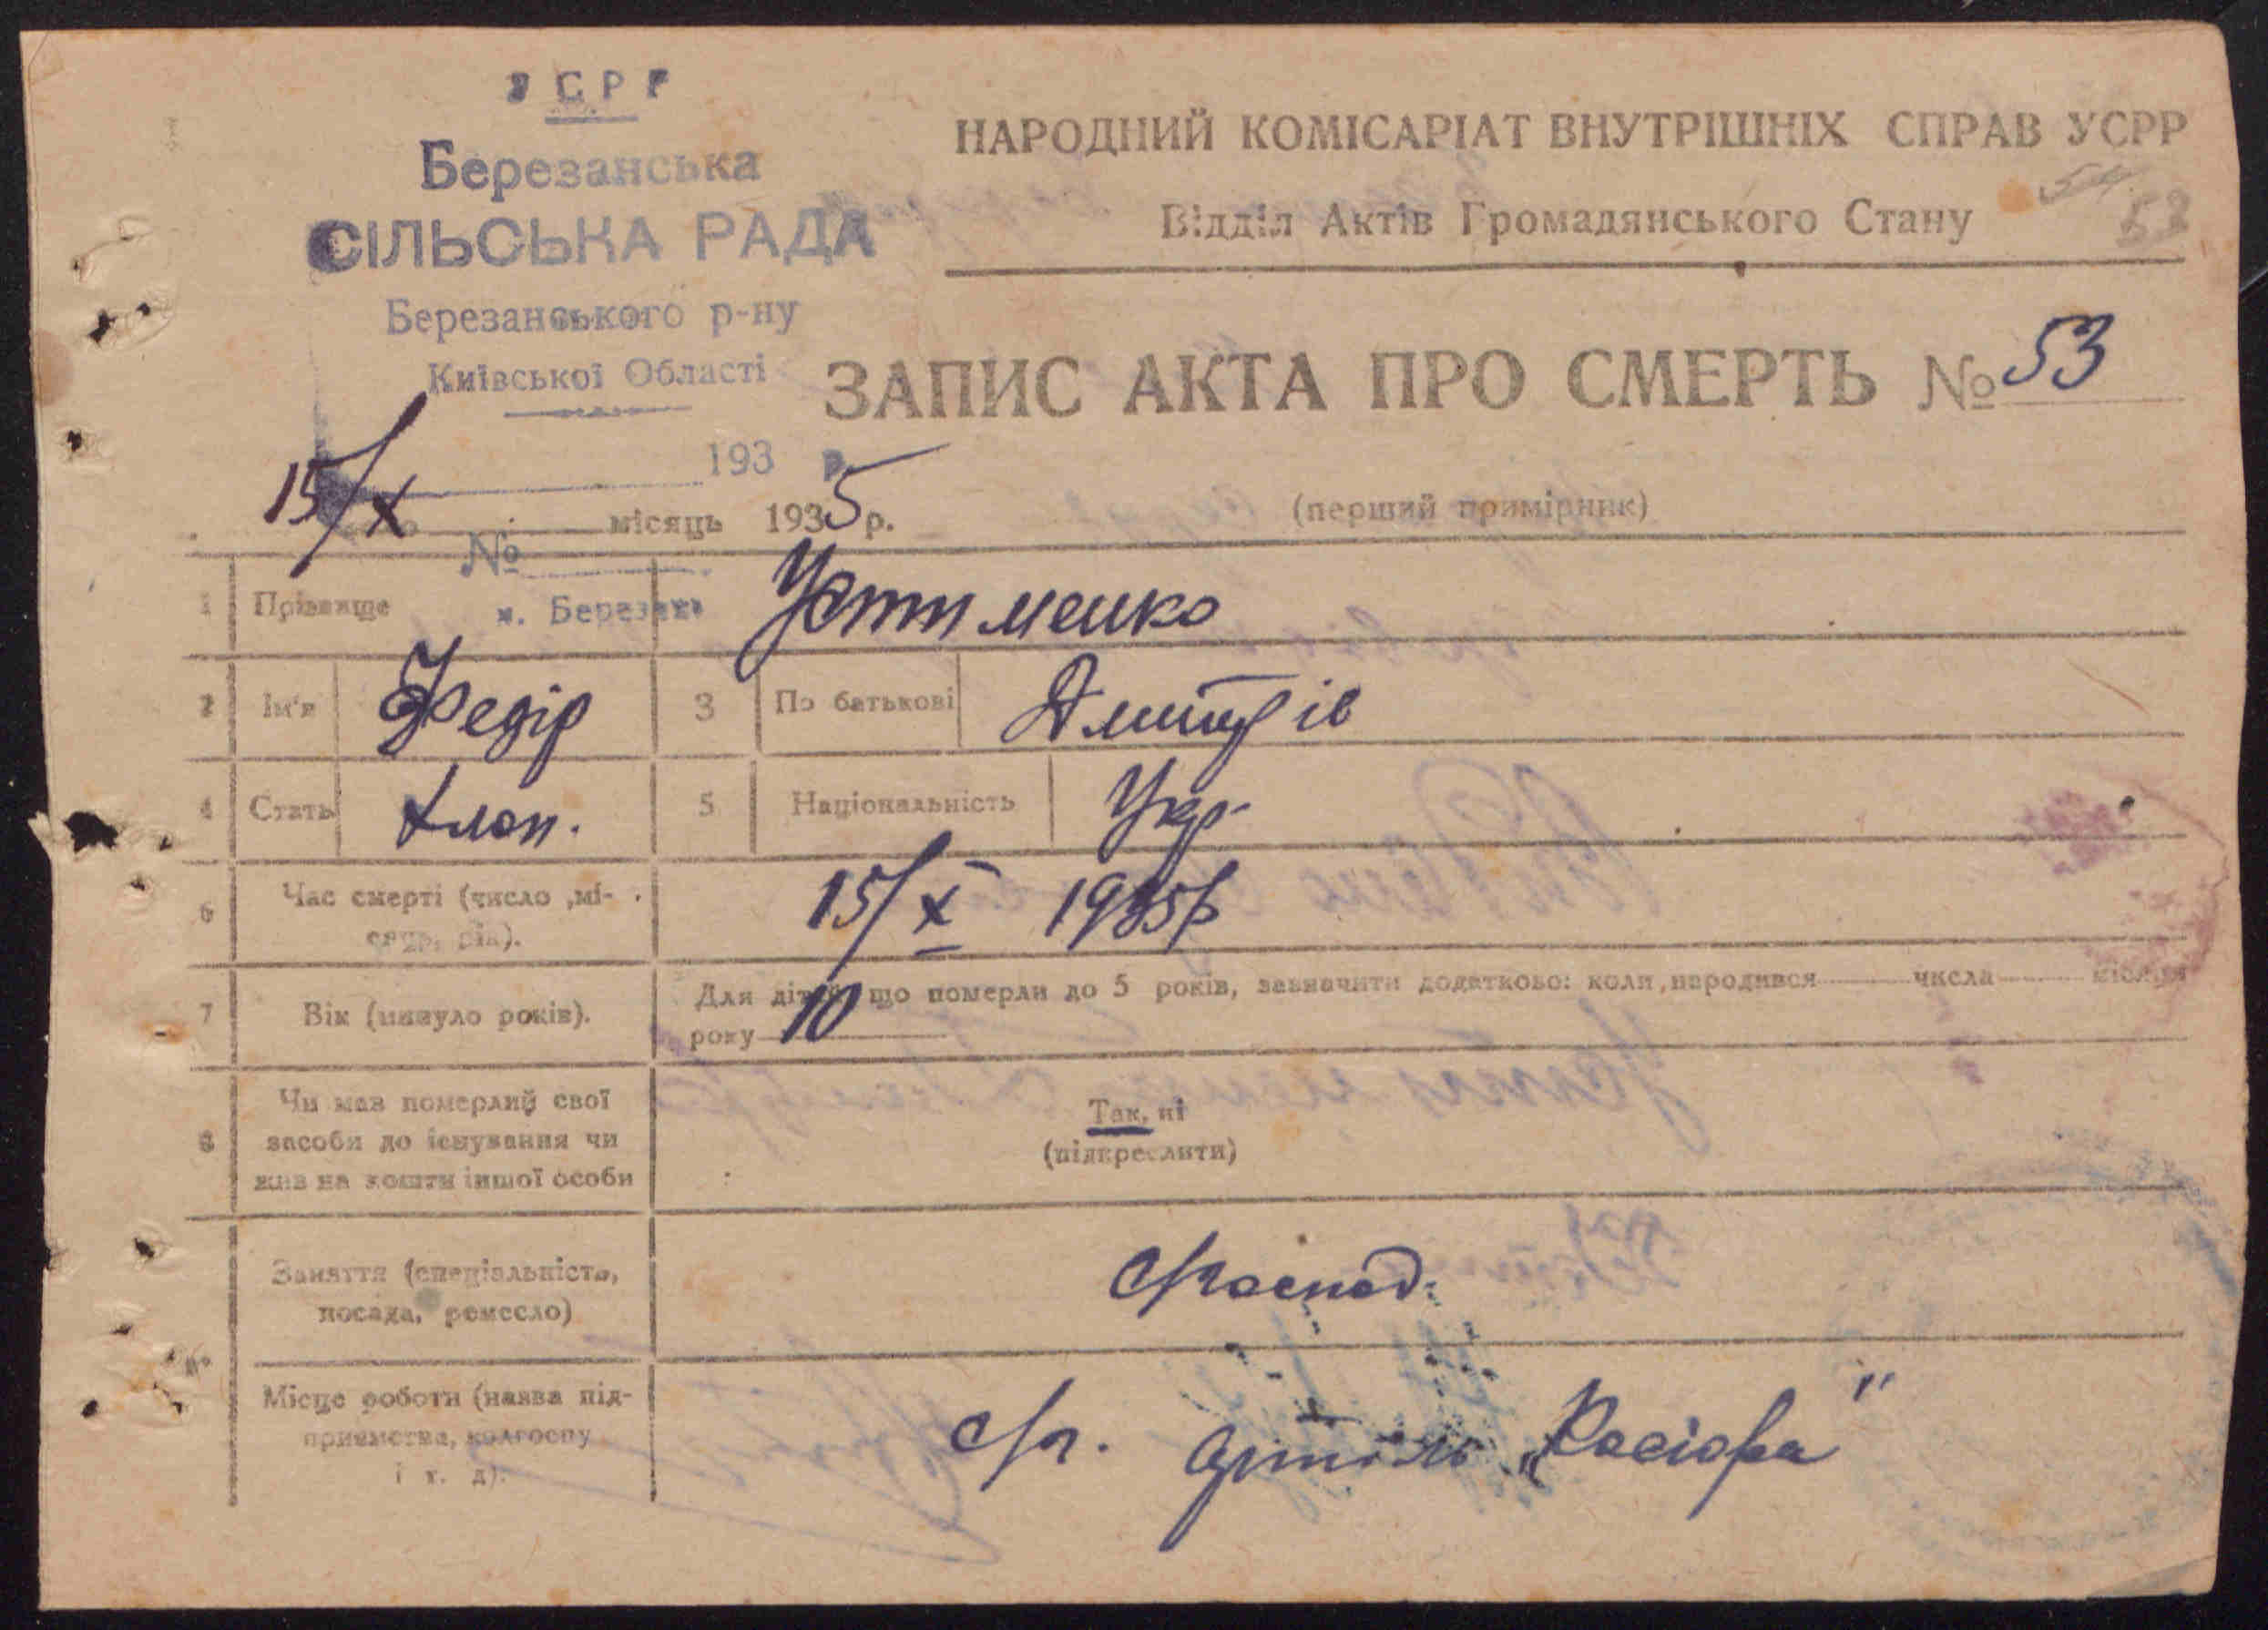 УСРР
Березанська
СІЛЬСЬКА РАДА
Березанського р-ну
Київської Області
193 р.
№
м. Березань
НАРОДНИЙ КОМІСАРІАТ ВНУТРІШНІХ СПРАВ УСРР
Відділ Актів Громадянського Стану
54
53
ЗАПИС АКТА ПРО СМЕРТЬ № 53
15/X місяць 1935 р.
(перший примірник)
1 Прізвище Устименко
2 Ім'я Федір 3 По батькові Дмитрів
4 Стать Хлоп. 5 Національність Укр.
6 Час смерті (число ,мі-
сяць, рік).
15/X 1935 р
7 Вік (минуло років).
Для дітей, що померли до 5 років, зазначити додатково: коли народився числа місяця
року 10
8 Чи мав померлий свої
засоби до існування чи
жив на кошти іншої особи
Так, ні
(підкреслити)
Заняття (спеціальність,
посада, ремесло)
с/господ.
Місце роботи (назва під-
приємства, колгоспу
і т. д).
с/г. артіль „Косіора"